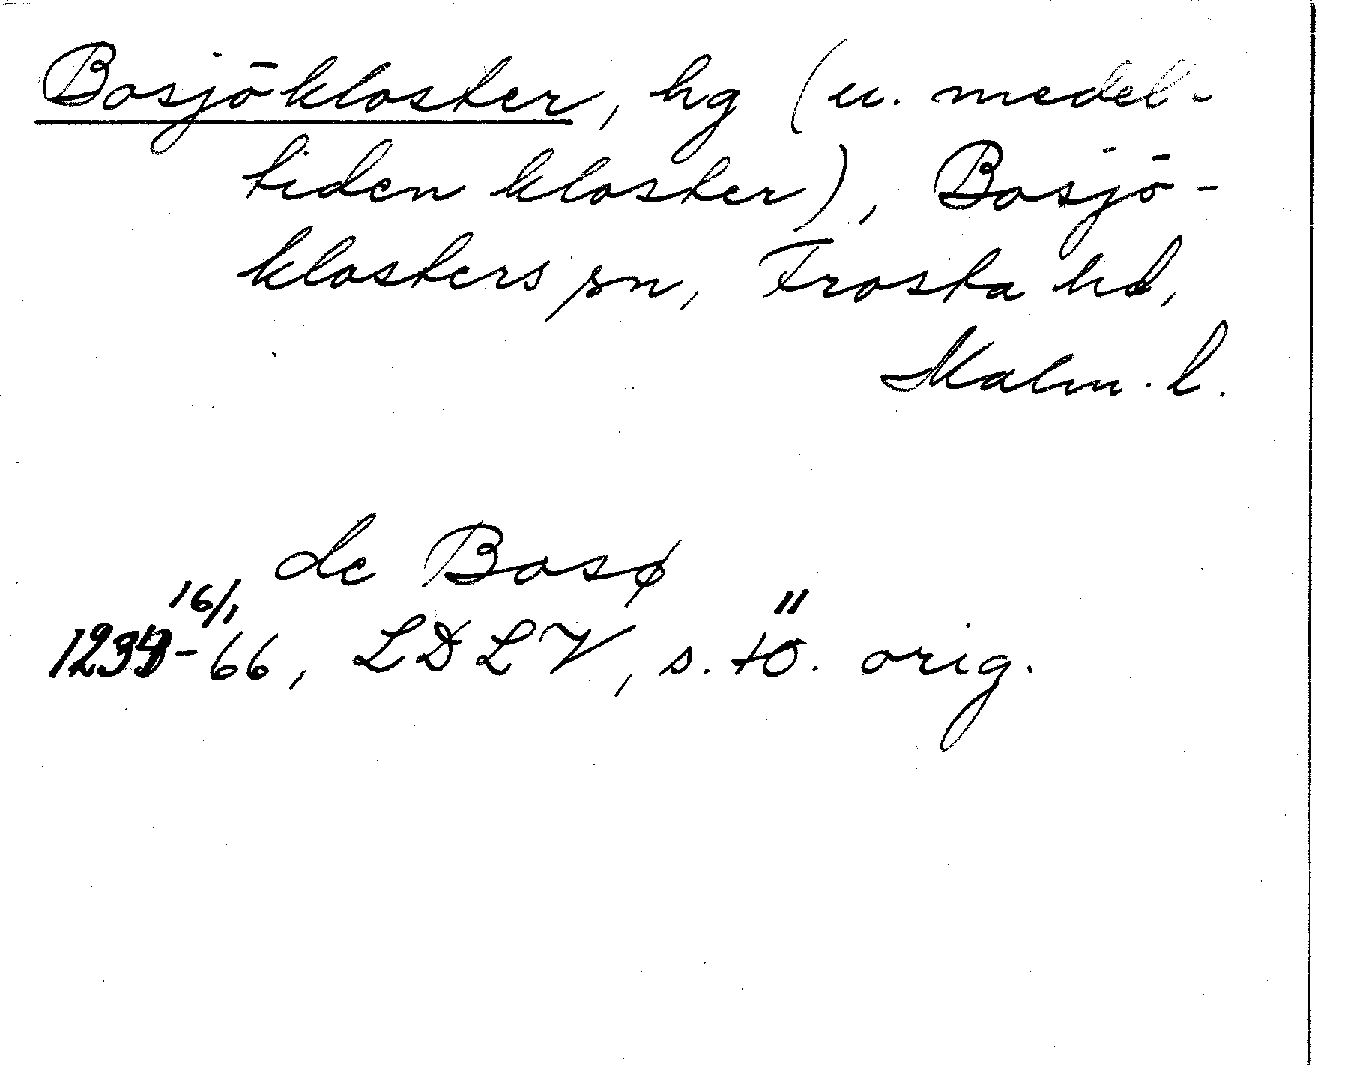 Bosjökloster, hg (u. medel-
tiden kloster), Bosjö-
klosters sn, Frosta hd,
Malm. l.
de Bosø
16/1
1234-66, LDLV, s. 10. orig.
11